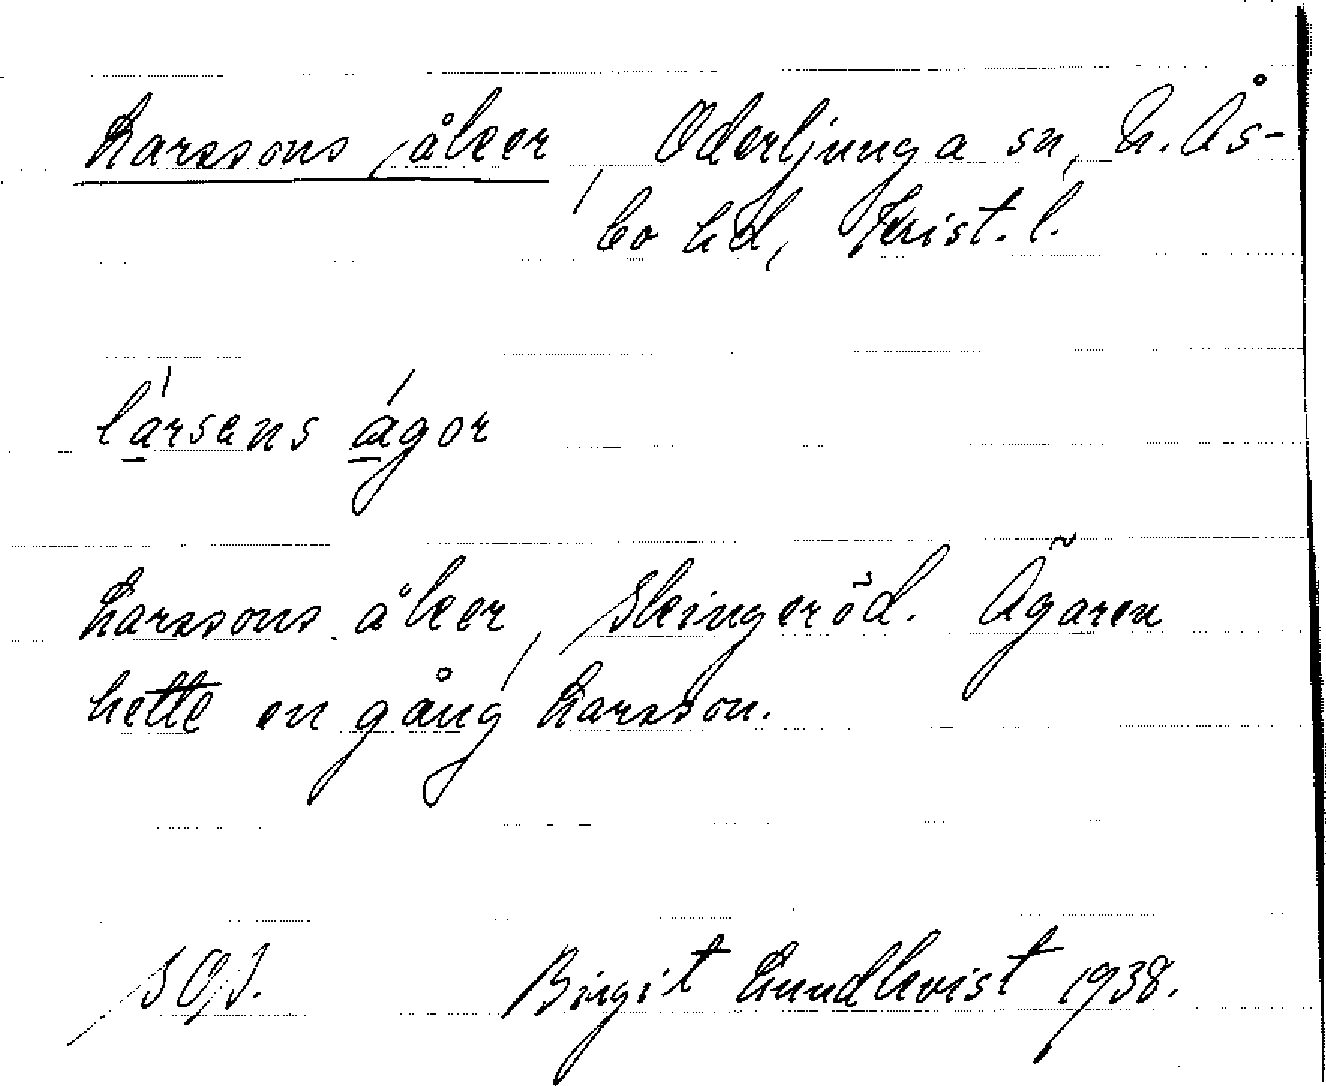 Larssons åker, Oderljunga sn, N. Ås-
bo hd, Krist. l.
lársens ágor
Larssons åker, Skingeröd. Ägaren
hette en gång Larsson.
Birgit Lundkvist 1938.